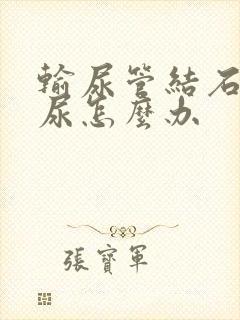 輸尿管結石
尿怎麼办
張寶軍